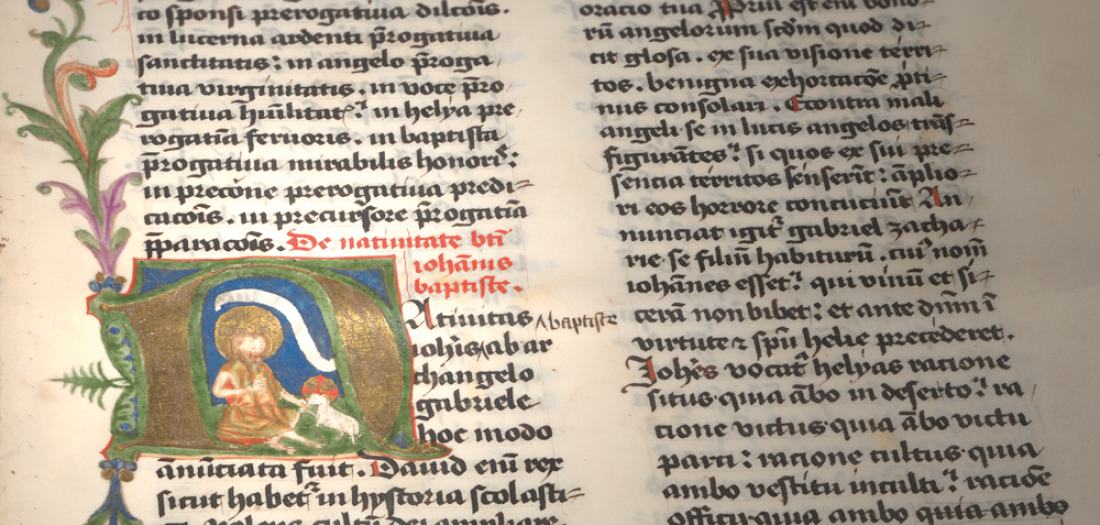 to sponsi prerogatiua dilcōis.
in lucerna ardenti p̄rogatiua
sanctitatis: in angelo p̄roga
tiua virginitatis. in voce p̄ro
gatiua hūilitat᷑: in helya pre
rogatiā feruoris. in baptista
p̄rogatiua mirabilis honor᷑:
in precōne prerogatiua predi-
cacōis. in precursore p̄rogatiā
p̄paracōis. De natiuitate bt̄i
iohānis
baptiste.
Natiuitas
baptiste
ioh̄is ab ar
changelo
gabriele
hoc modo
ānūciata fuit. Dauid enī rex
sicut habet᷑ in hystoria scolasti-
oratio tua
rū angelorum scd̄m quod di-
cit glosa. ex sua visione terri-
tos. benigna exhortacōe p̄ti-
nus consolari. Econtra mali
angeli se in lucis angelos trās-
figurātes: si quos ex sui pre-
sencia territos senserīt: āplio-
ri eos horrore concuciūt An
nunciat igit᷑ gabriel zacha-
rie se filiū habiturū. cui᷒ nom̄
iohānes esset: qui vinū et si-
cerā non bibet: et ante dn̄m ī
virtute ⁊ sp̄u helie precederet.
Joh̄es vocat᷑ helyas racione
situs quia ābo in deserto: ra
cione victus quia ābo victu
parci: racione cultus quia
ambo vestitu inculti: raciōe
officii quia ambo quia ambo